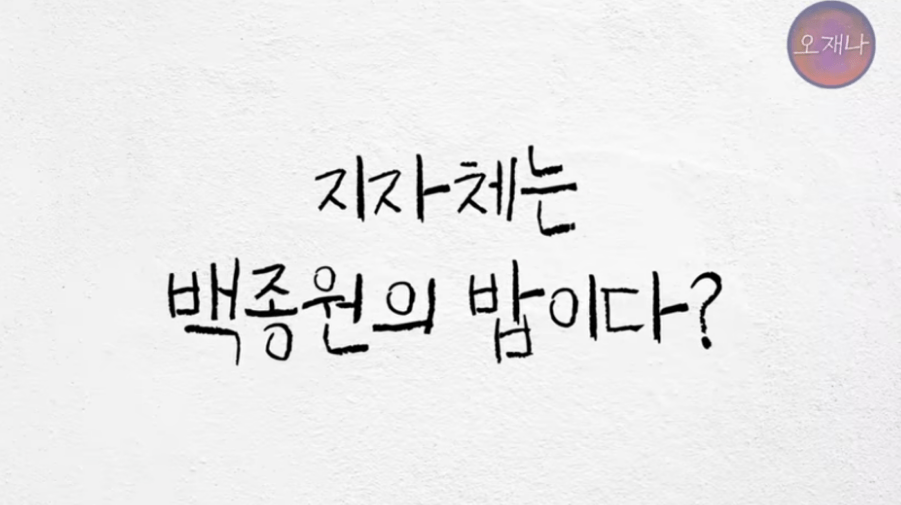 오재나
지자체는
백종원의 밥이다?